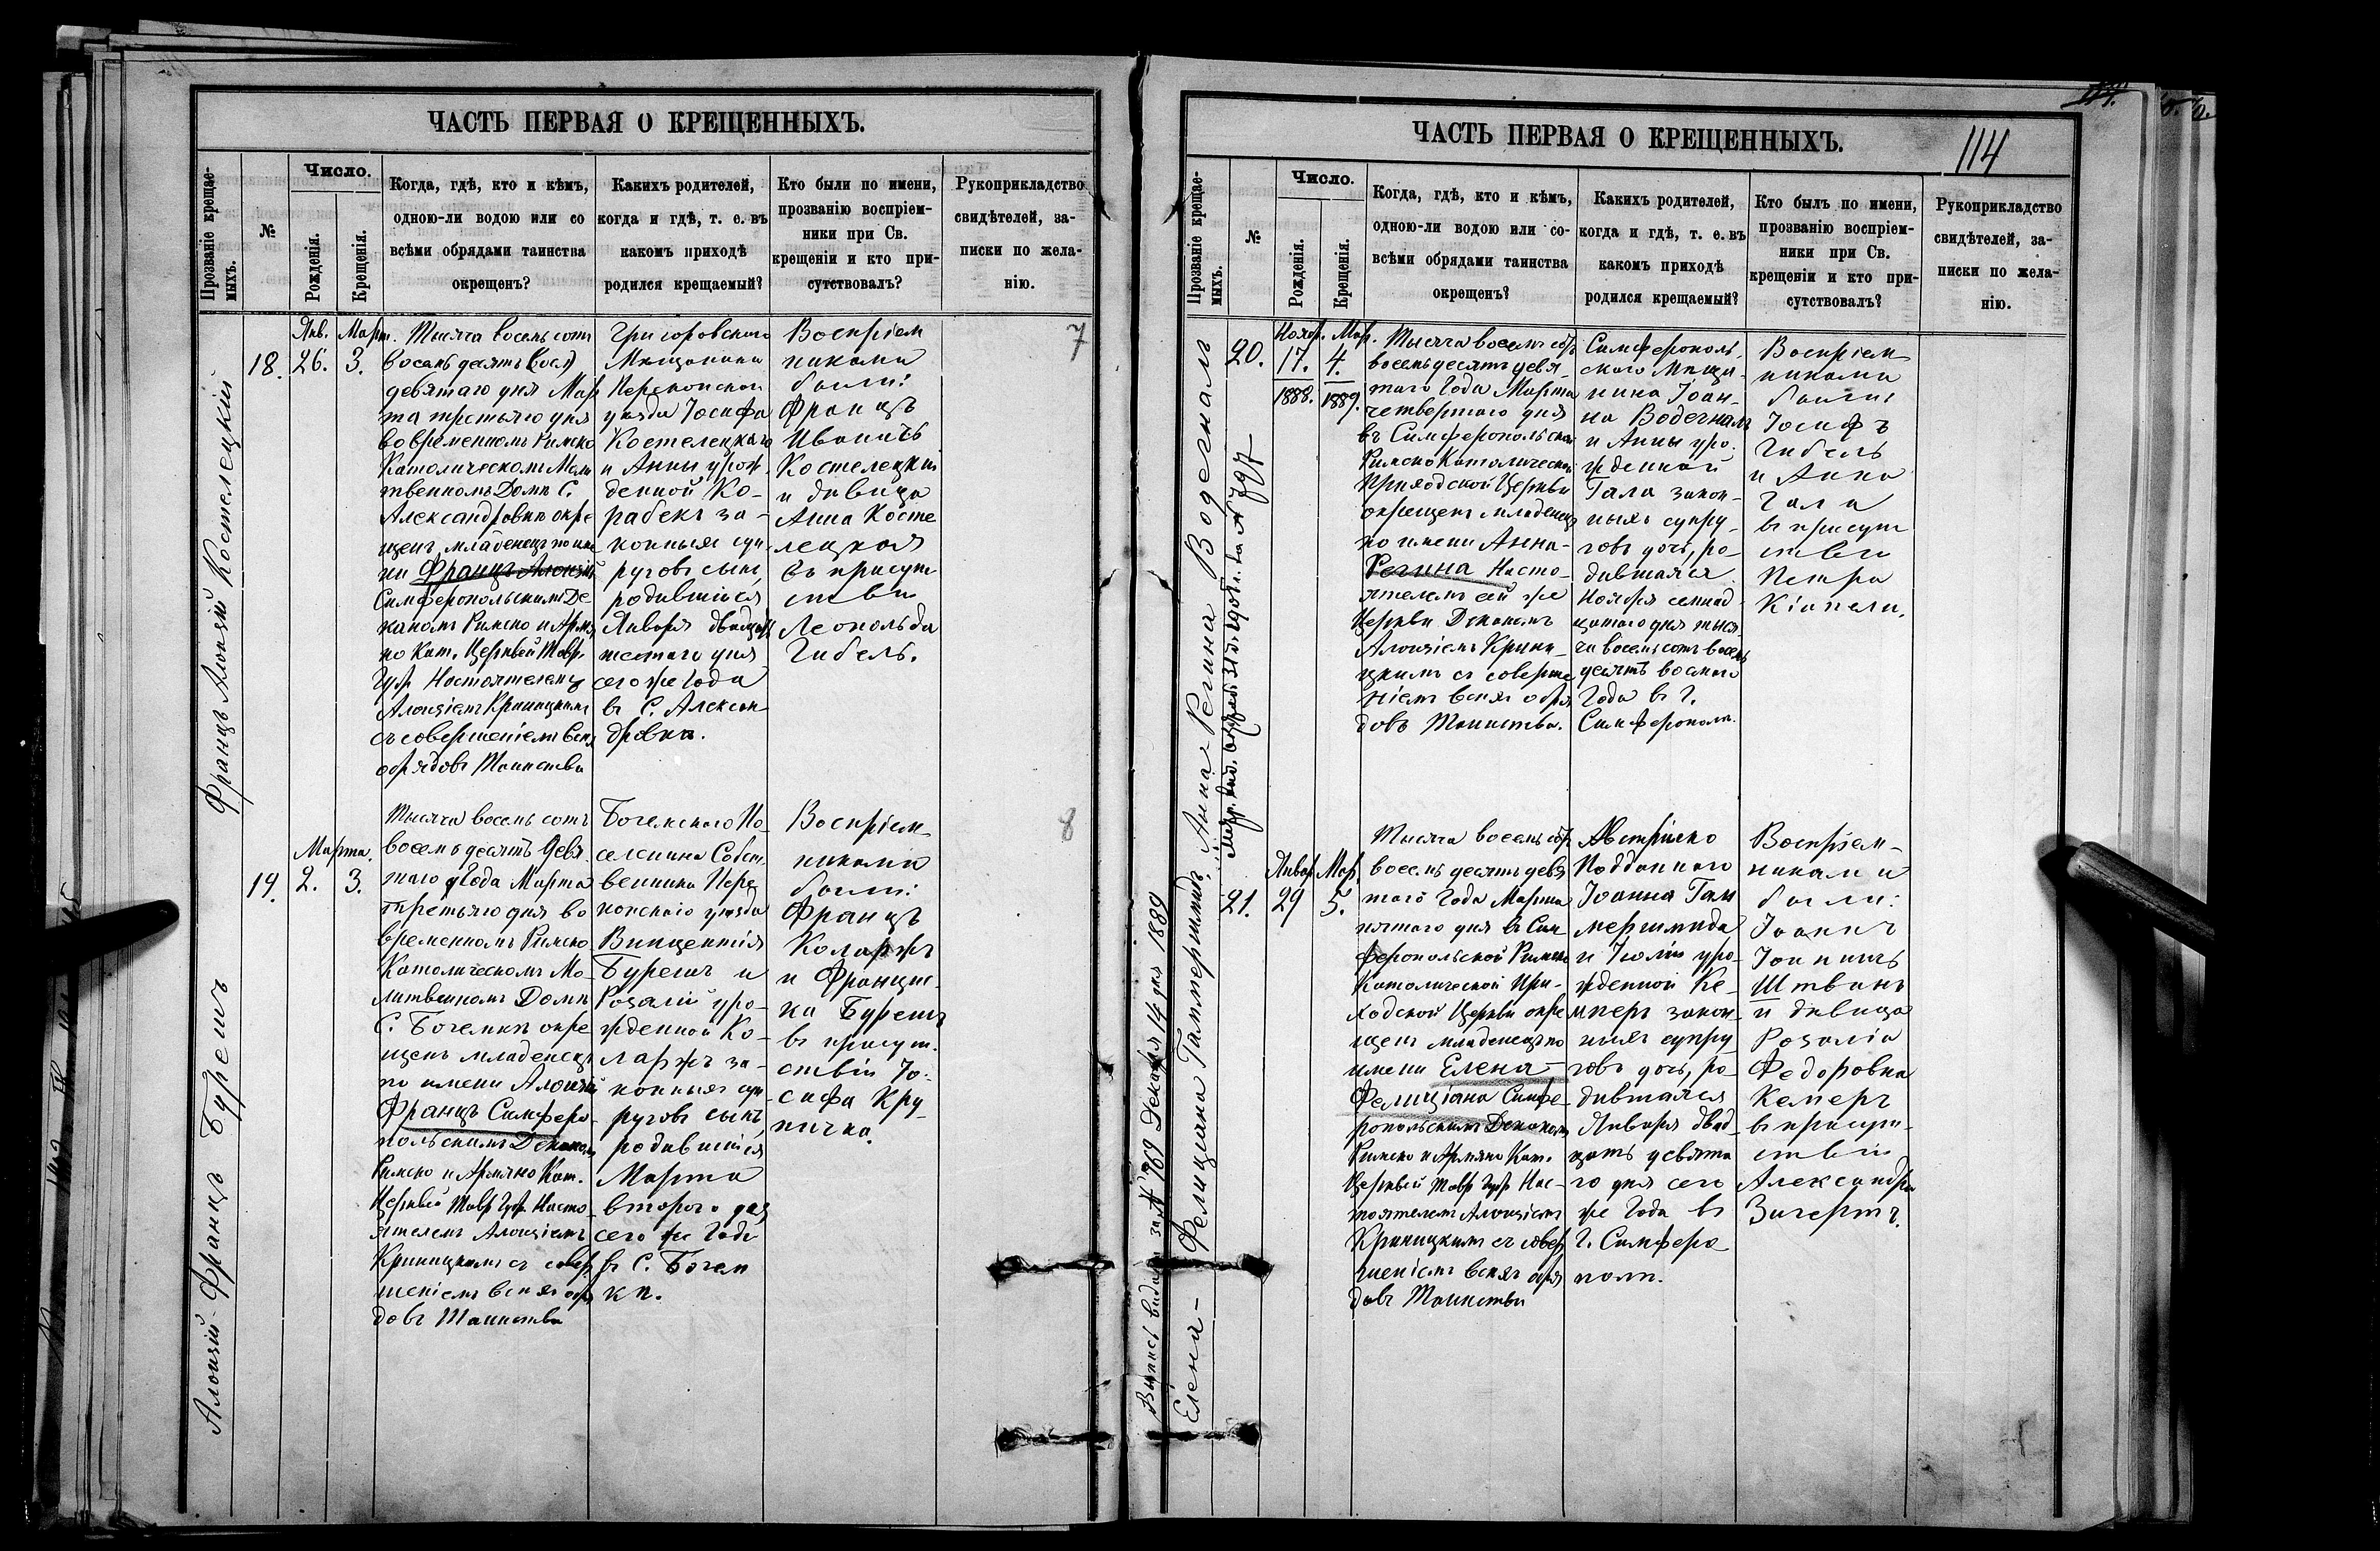 ЧАСТЬ ПЕРВАЯ О КРЕЩЕННЫХЪ.
Прозваніе крещае-
мыхъ.
№
Число.
Рожденія.
Крещенія.
Когда, гдѣ, кто и кѣмъ,
одною-ли водою или со
всѣми обрядами таинства
окрещенъ?
Какихъ родителей,
когда и гдѣ, т. е. въ
какомъ приходѣ
родился крещаемый?
Кто были по имени,
прозванію воспріем-
ники при Св.
крещеніи и кто при-
сутствовалъ?
Рукоприкладство
свидѣтелей, за-
писки по жела-
нію.
Францъ Алоизій Костелецкій
18.
Янв.
26.
Март.
3.
Тысяча восемь сотъ
восемь десятъ
девятаго дня Мар
та третьяго дня
во временномъ Римско
Католическомъ Моли
твенномъ Домѣ С.
Александровкѣ окре
щенъ младенецъ по име
ни Францъ Алоизій
Симферопольскимъ Де
каномъ Римско и Армя
но Кат. Церквей Тавр.
Губ. Настоятелемъ
Алоизіемъ Криницкимъ
съ совершеніемъ всѣхъ
обрядовъ Таинства
Григоровского
Мѣщанина
Перекопскаго
уѣзда Іосифа
Костелецкаго
и Анны урож
денной Ко-
рабекъ за-
конныхъ суп
руговъ сынъ,
родившійся
Января двадцать
шестаго дня
сего же Года
въ С. Алексан
дровкѣ.
Воспріем
никами
были:
Францъ
Иваничъ
Костелецкій
и дѣвица
Анна Косте
лецкая
въ присут
ствіи
Леопольда
Гибель.
7
Алоизій-Францъ Бурешъ
19.
Марта.
2.
3.
Тысяча восемь сотъ
восемь десятъ девя
таго Года Марта
третьяго дня во
временномъ Римско
Католическомъ Мо-
литвенномъ Домѣ
С. Богемкѣ окре
щенъ младенецъ
по имени Алоизій
Францъ Симферо-
польскимъ Деканомъ
Римско и Армяно Кат.
Церквей Тавр Губ. Насто-
ятелемъ Алоизіемъ
Криницкимъ съ совер
шеніемъ всѣхъ обря
довъ Таинства
Богемского По-
селенина Собст.
венника Пере
копскаго уѣзда
Винцентія
Бурешъ и
Розаліи уро-
жденной Ко-
ларжъ за-
конныхъ суп
руговъ сынъ
родившійся
Марта
второго дня
сего же Года
въ С. Богем
кѣ.
Воспріем-
никами
были:
Францъ
Коларжъ
и Францис-
ка Бурешъ
въ присут.
ствіи Іо-
сифа Кру
пичка.
8
ЧАСТЬ ПЕРВАЯ О КРЕЩЕННЫХЪ.
114
Прозваніе крещае-
мыхъ.
№
Число.
Рожденія.
Крещенія.
Когда, гдѣ, кто и кѣмъ,
одною-ли водою или со-
всѣми обрядами таинства
окрещенъ?
Какихъ родителей,
когда и гдѣ, т. е. въ
какомъ приходѣ
родился крещаемый?
Кто былъ по имени,
прозванію воспріем-
ники при Св.
крещеніи и кто при-
сутствовалъ?
Рукоприкладство
свидѣтелей, за-
писки по жела-
нію.
Анна-Регина Водегналъ
№ 797
20.
Нояб.
17.
1888.
Мар.
4.
1889.
Тысяча восемь сотъ
восемьдесятъ девя-
таго Года Марта
четвертаго дня
въ Симферопольской
Римско Католической
Приходской Церкви
окрещенъ младенецъ
по имени Анна-
Регина Насто-
ятелемъ сей же
Церкви Деканомъ
Алоизіемъ Крини-
цкимъ съ соверше
ніемъ всѣхъ обря
довъ Таинства.
Симферополь.
ского Мѣща-
нина Іоан-
на Водегналъ
и Анны уро.
жденной
Гала закон-
ныхъ супру-
говъ дочь, ро-
дившаяся
Ноября семнад-
цатаго дня тыся
ча восемь сотъ восемь
десятъ восмого
Года въ Г.
Симферополѣ.
Воспріем
никами
были
Іосифъ
Гибель
и Анна
Гала
въ присут
ствіи
Петра
Кіапели.
Выпись видана за № 769 Декабря 14 дня 1889
Елена-Фелициана Гаммершмидъ
21.
Январ
29
Мар
5.
Тысяча восемь сотъ
восемь десятъ девя
таго Года Марта
пятаго дня въ Сим
феропольской Римско
Католической При-
ходской Церкви окре
щенъ младенецъ по
имени Елена-
Фелиціана Симфе-
ропольскимъ Деканомъ
Римско и Армяно Кат.
Церквей Тавр Губ Нас-
тоятелемъ Алоизіемъ
Криницкимъ съ совер
шеніемъ всѣхъ обря
довъ Таинства
Австрійско
Подданного
Іоанна Гам
мершмида
и Юліи уро-
жденной Ке-
мперъ закон-
ныхъ супру
говъ дочь, ро-
дившаяся
Января двад-
цать девята
го дня сего
же Года въ
Г. Симферо
полѣ.
Воспріем-
никами
были:
Іоаннъ
Іоаничъ
Штванъ
и дѣвица
Розалія
Федоровна
Кемперъ
въ присут-
ствіи
Александра
Зигертъ.